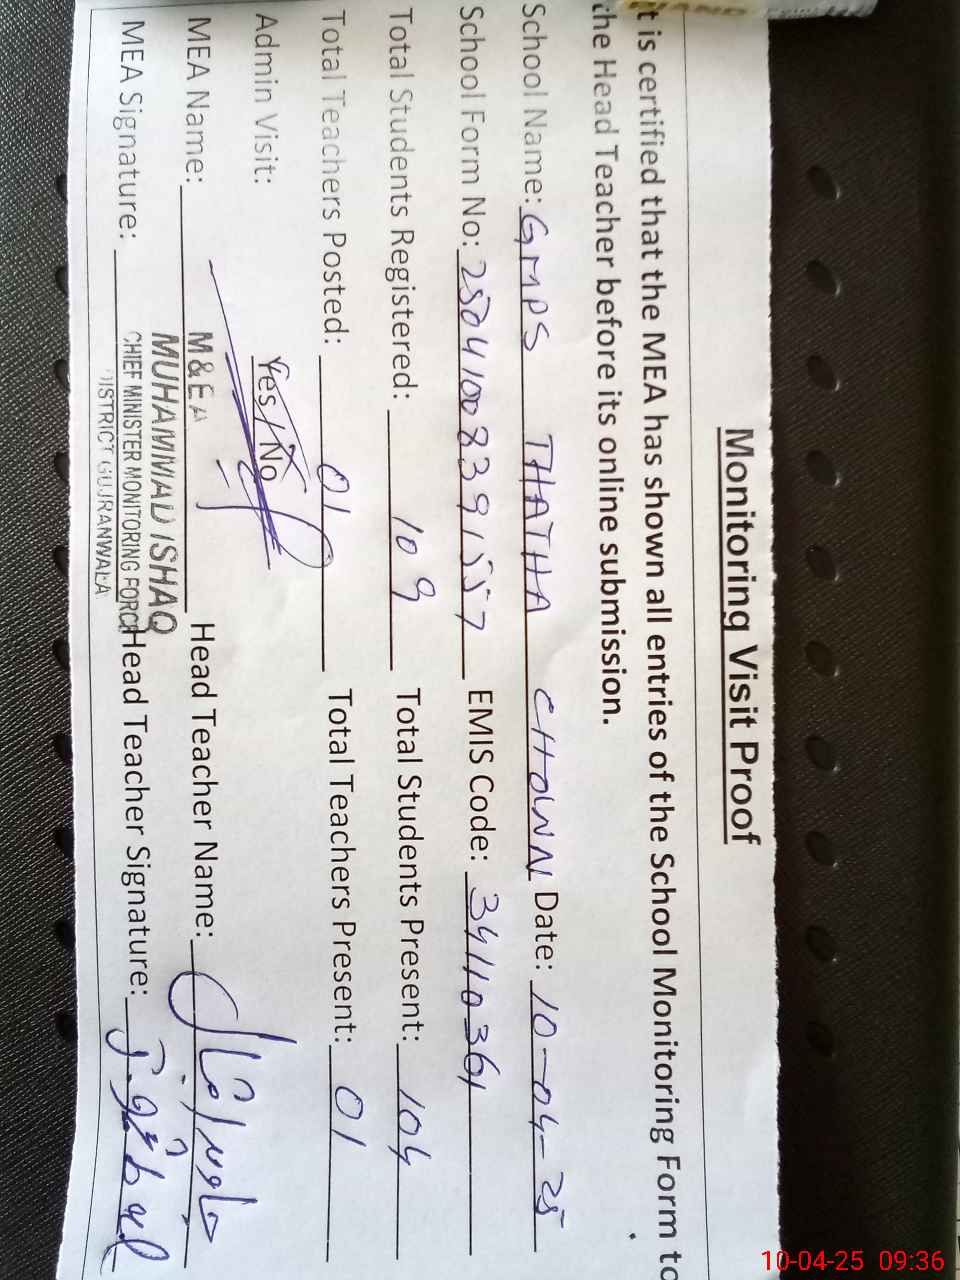 Monitoring Visit Proof
t is certified that the MEA has shown all entries of the School Monitoring Form to
the Head Teacher before its online submission.
School Name: GMPS THATHA CHOWN Date: 10-04-25
School Form No: 25041008391557 EMIS Code: 34110361
Total Students Registered: 109 Total Students Present: 104
Total Teachers Posted: 01 Total Teachers Present: 01
Admin Visit: Yes / No
MEA Name: M&EA Head Teacher Name:
MUHAMMAD ISHAQ
MEA Signature: CHIEF MINISTER MONITORING FORCE Head Teacher Signature:
DISTRICT GUJRANWALA
10-04-25 09:36